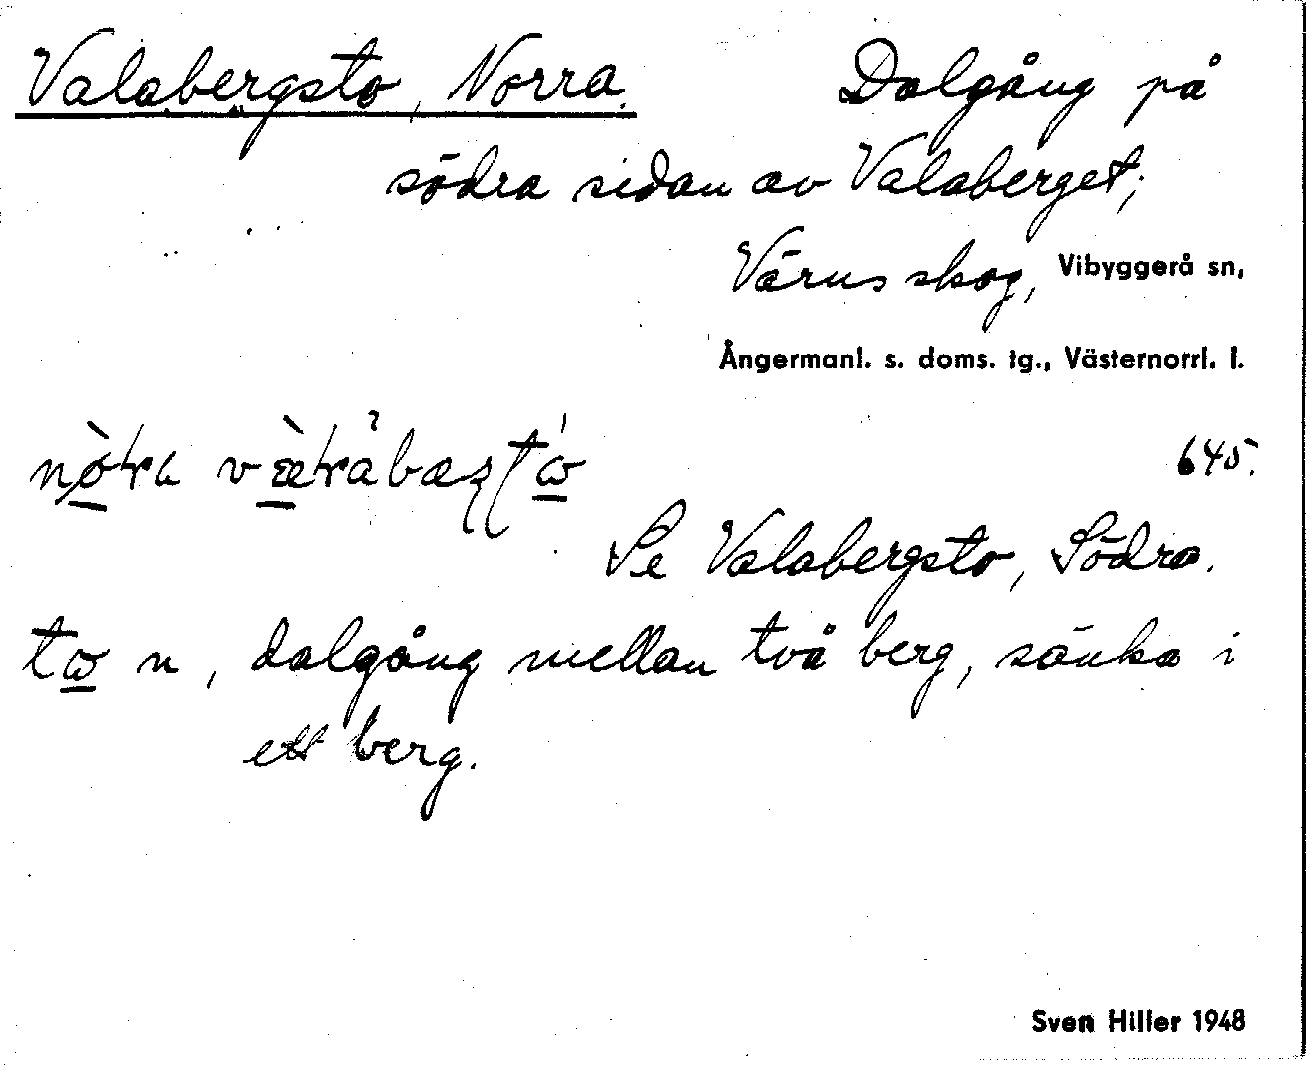 Valabergsto, Norra. Dalgång på
södra sidan av Valaberget;
Värns skog, Vibyggerå sn,
Ångermanl. s. doms. tg., Västernorrl. l.
645.
Se Valabergsto, Södra.
n, dalgång mellan två berg, sänka i
ett berg.
Sven Hiller 1948